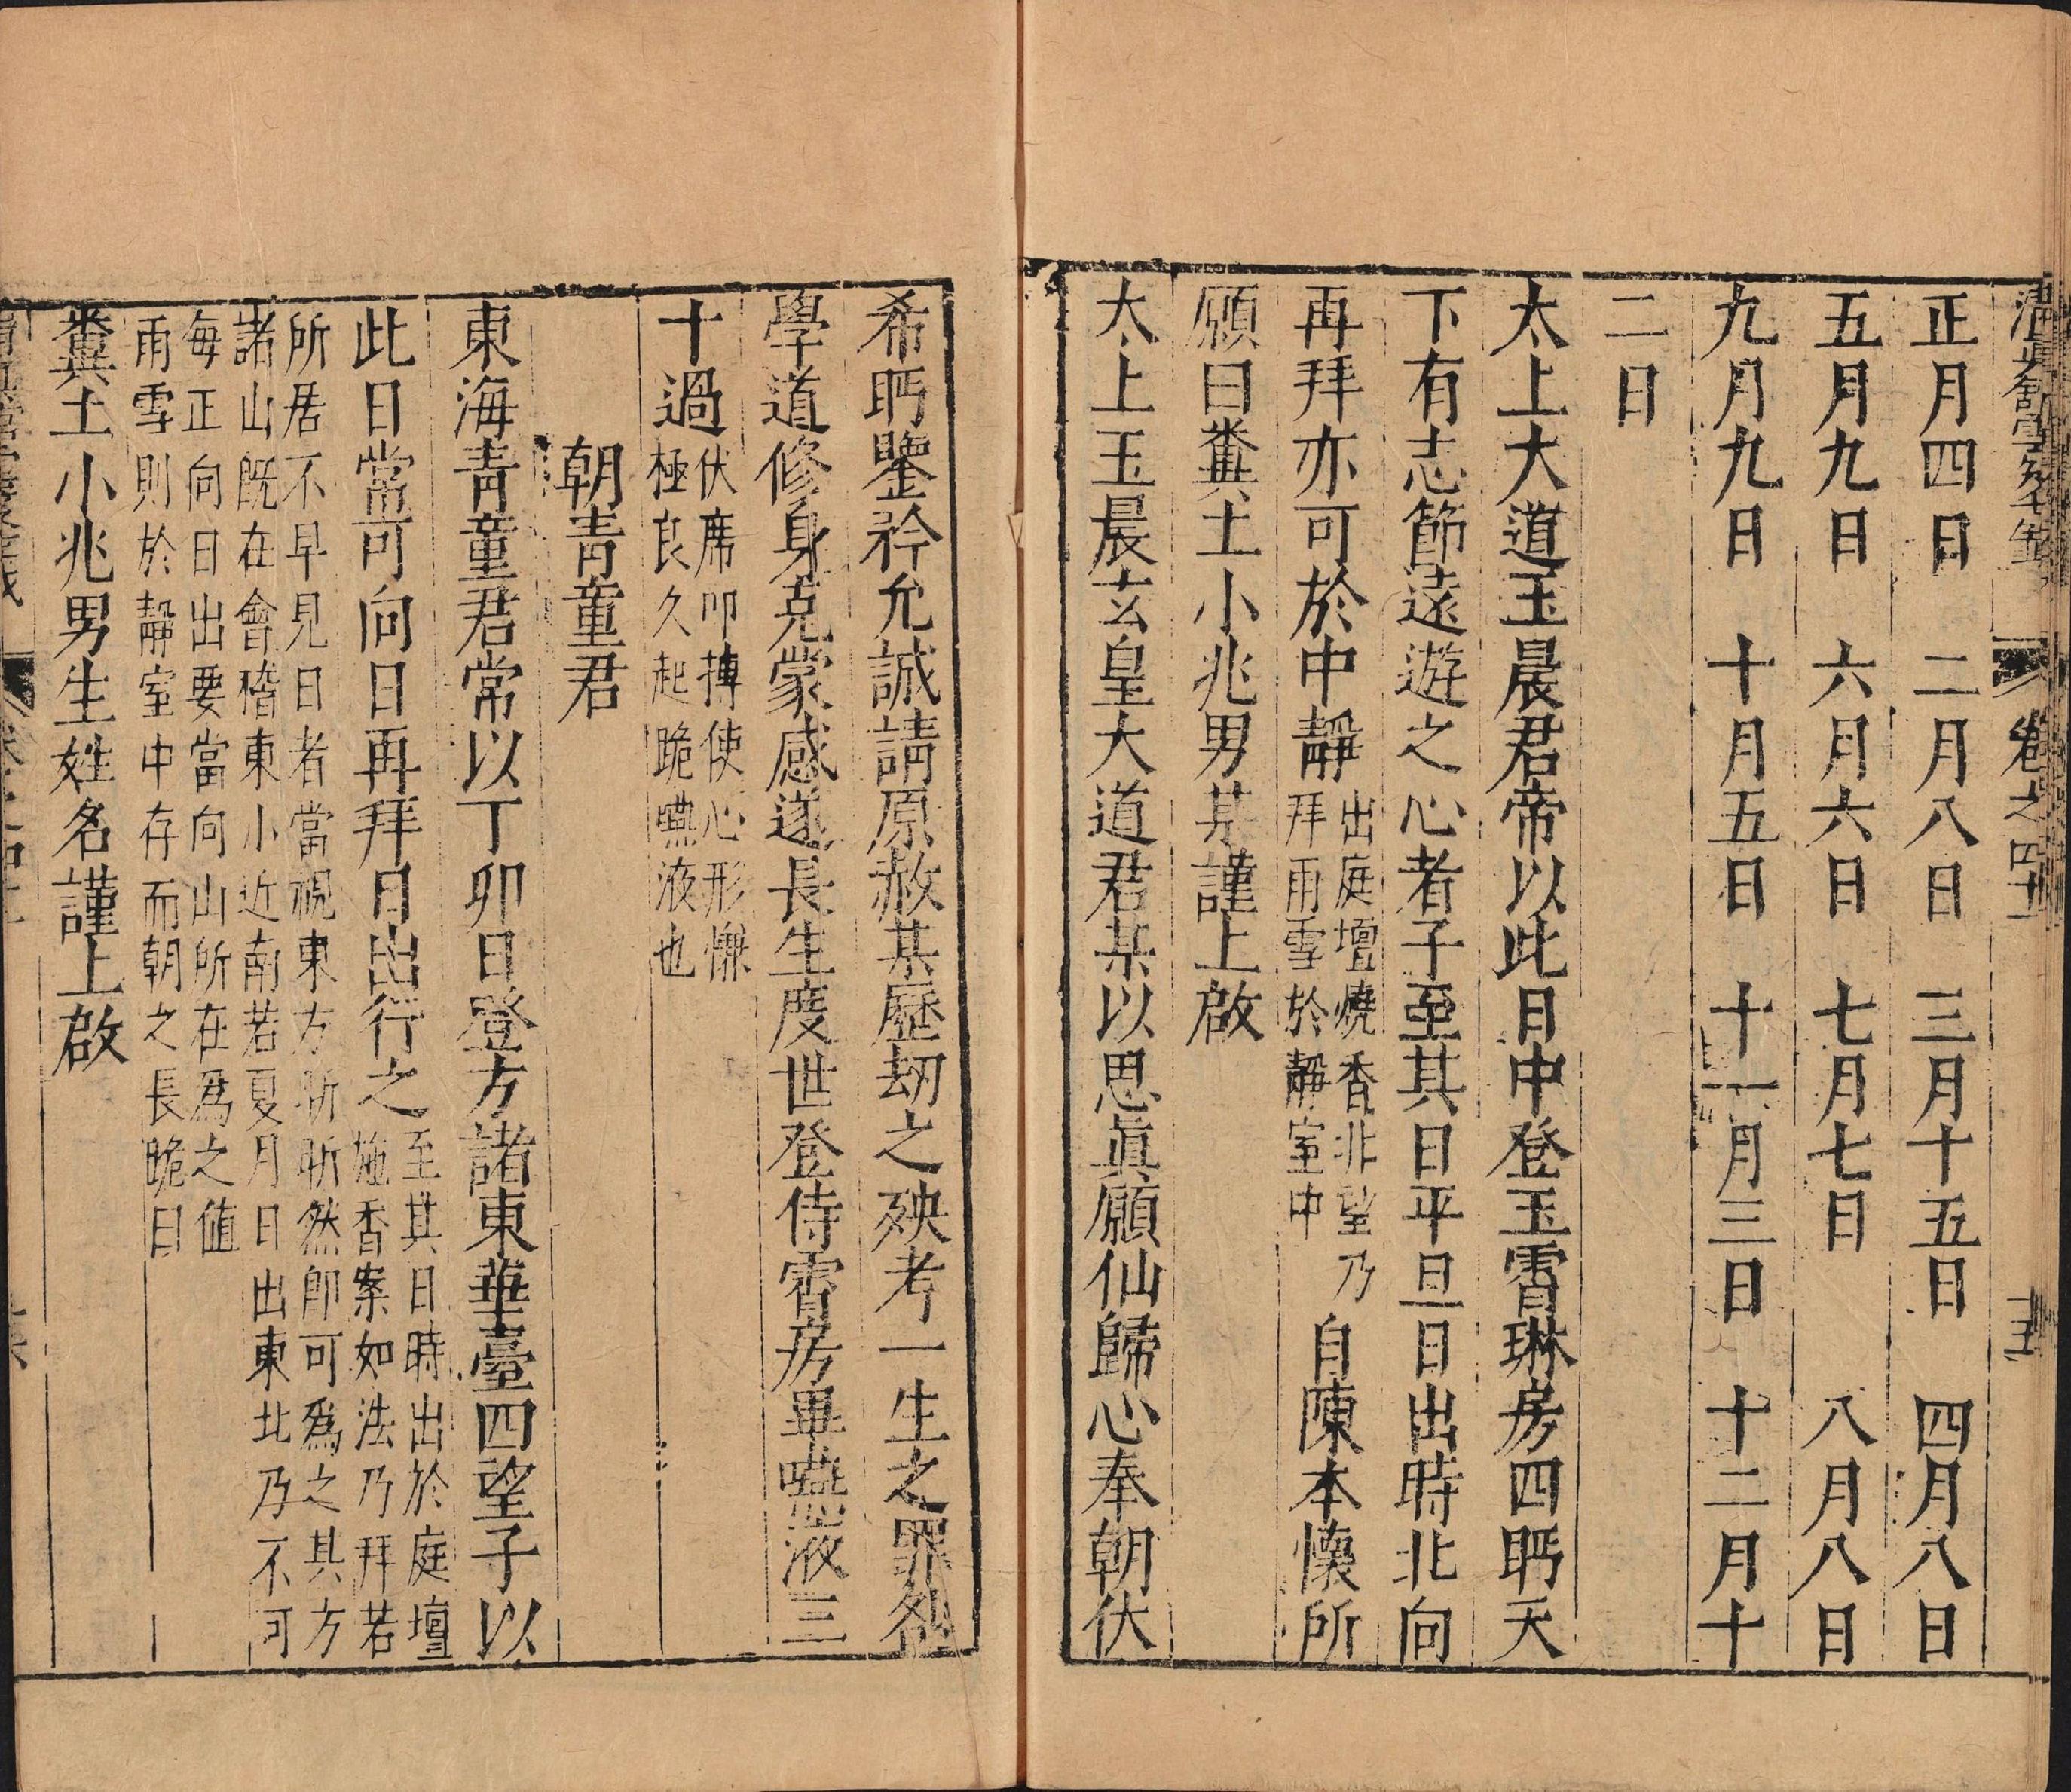 清眞館雲笈七籤 卷之四十一 十五
正月四日 二月八日 三月十五日 四月八日
五月九日 六月六日 七月七日 八月八日
九月九日 十月五日 十一月三日 十二月十
二日
太上大道玉晨君帝以此日中登玉霄琳房四眄天
下有志節遠遊之心者子至其日平旦日出時北向
再拜亦可於中靜出庭壇燒香非望乃
拜雨雪於靜室中自陳本懷所
願曰糞土小兆男某謹上啟
太上玉晨玄皇大道君某以思眞願仙歸心奉朝伏
希眄鑒矜允誠請原赦某歷刼之殃考一生之罪咎
學道修身克蒙感遂長生度世登侍霄房畢嚥液三
十過伏席叩搏使心形慊
極良久起跪嚥液也
朝青童君
東海青童君常以丁卯日登方諸東華臺四望子以
此日常可向日再拜日出行之至其日時出於庭壇
施香案如法乃拜若
所居不早見日者當視東方昕昕然卽可爲之其方
諸山旣在會稽東小近南若夏月日出東北乃不可
每正向日出要當向山所在爲之值
雨雪則於靜室中存而朝之長跪曰
糞土小兆男生姓名謹上啟